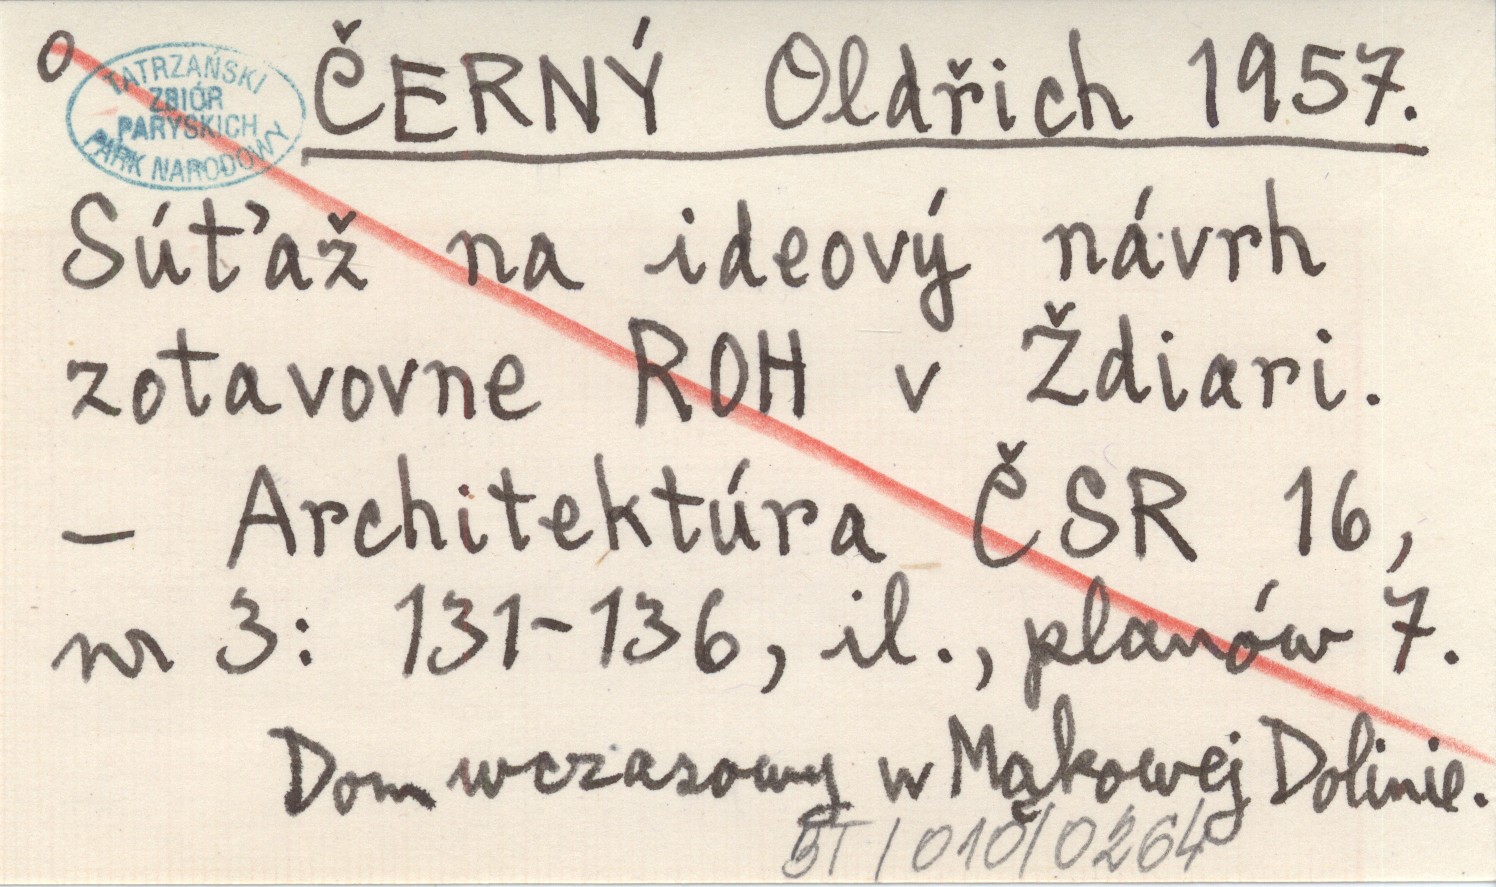 o
TATRZAŃSKI
ZBIÓR
PARYSKICH
PARK NARODOWY
ČERNÝ Oldřich 1957.
Súťaž na ideový návrh
zotavovne ROH v Ždiari.
— Architektúra ČSR 16,
nr 3: 131-136, il., planów 7.
Dom wczasowy w Mąkowej Dolinie.
BT/010/0264